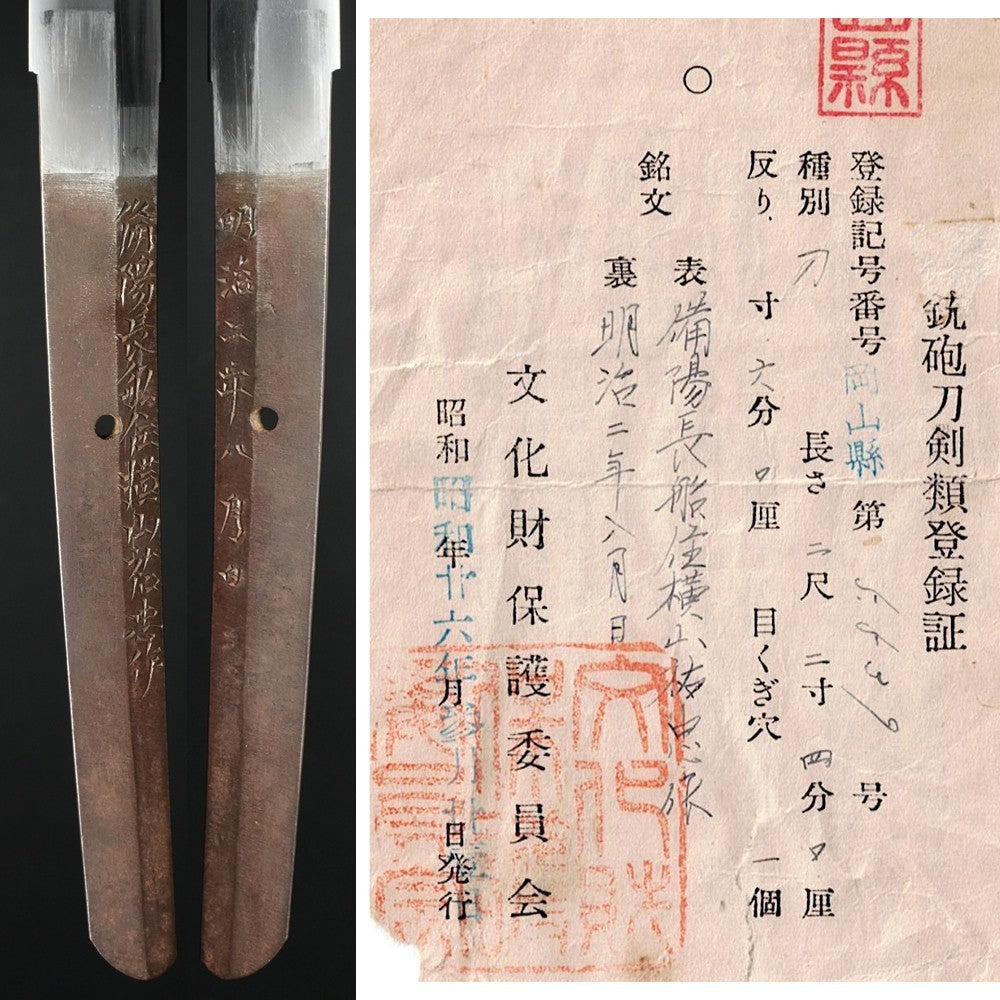 備陽長船住横山祐忠作
明治二年八月日
縣
銃砲刀剣類登録証
登録記号番号 岡山縣 第 号
種別 刀 長さ 二尺 二寸 四分 厘
反り 寸 六分 厘 目くぎ穴 一個
銘文 表 備陽長船住横山祐忠作
裏 明治二年八月日
文化財保護委員会
昭和 年 月 日発行
昭和廿六年